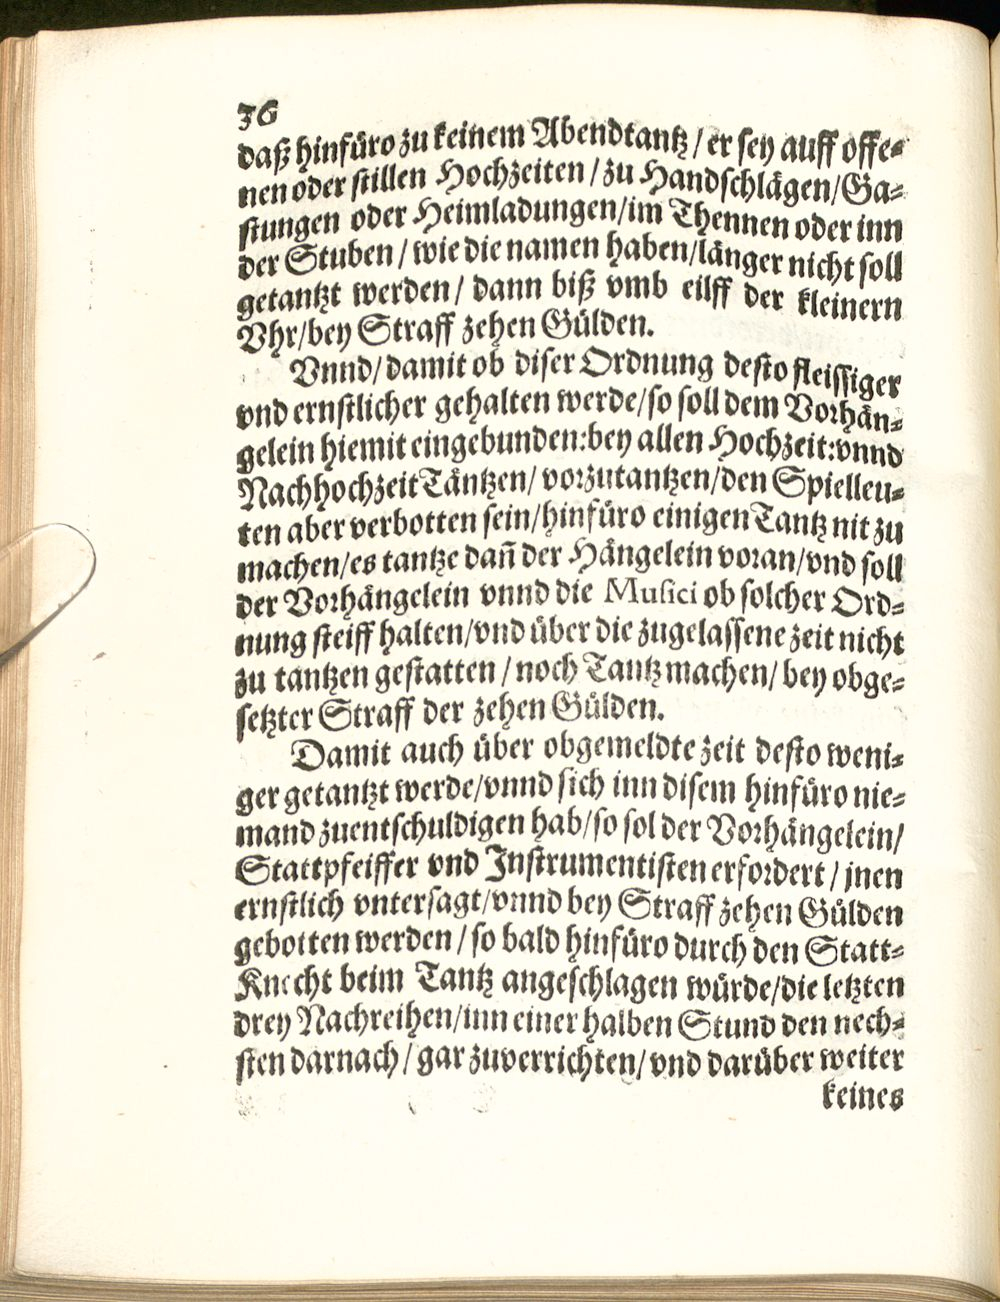 36
daß hinfüro zu keinem Abendtantz / er sey auff offe⸗
nen oder stillen Hochzeiten / zu Handschlägen/Ga⸗
stungen oder Heimladungen/im Thennen oder inn
der Stuben / wie die namen haben/länger nicht soll
getantzt werden / dann biß vmb eilff der kleinern
Vhr/bey Straff zehen Gülden.
Vnnd/damit ob diser Ordnung desto fleissiger
vnd ernstlicher gehalten werde/so soll dem Vorhän⸗
gelein hiemit eingebunden:bey allen Hochzeit:vnnd
Nachhochzeit Täntzen/ vorzutantzen/den Spielleu⸗
ten aber verbotten sein/hinfüro einigen Tantz nit zu
machen/es tantze dañ der Hängelein voran/vnd soll
der Vorhängelein vnnd die Musici ob solcher Ord⸗
nung steiff halten/vnd über die zugelassene zeit nicht
zu tantzen gestatten / noch Tantz machen/ bey obge⸗
setzter Straff der zehen Gülden.
Damit auch über obgemeldte zeit desto weni⸗
ger getantzt werde/vnnd sich inn disem hinfüro nie⸗
mand zuentschuldigen hab/so sol der Vorhängelein/
Stattpfeiffer vnd Instrumentisten erfordert / jnen
ernstlich vntersagt/vnnd bey Straff zehen Gülden
gebotten werden / so bald hinfüro durch den Statt⸗
Knecht beim Tantz angeschlagen würde/die letzten
drey Nachreihen/inn einer halben Stund den nech⸗
sten darnach / gar zuverrichten/ vnd darüber weiter
keines